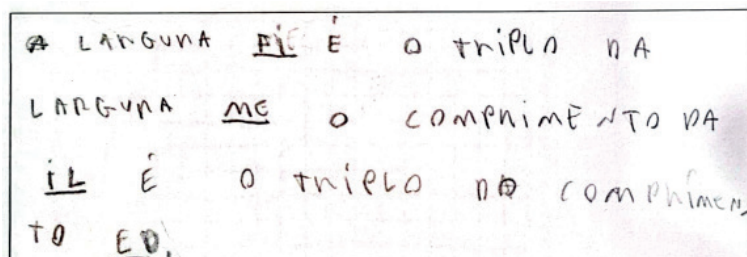 A LARGURA FI É O TRIPLO DA
LARGURA ME O COMPRIMENTO DA
IL É O TRIPLO DO COMPRIMEN
TO ED.